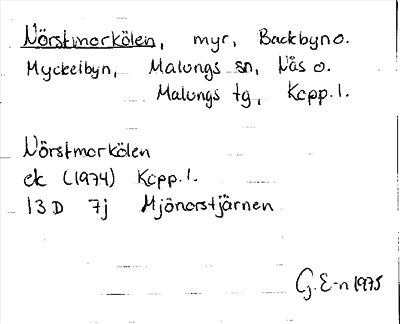 Nörstmorkölen, myr, Backbyn o.
Myckelbyn, Malungs sn, Nås o.
Malungs tg, Kopp. l.
Nörstmorkölen
ek (1974) Kopp. l.
13 D 7j Mjönorstjärnen
G. E-n 1975